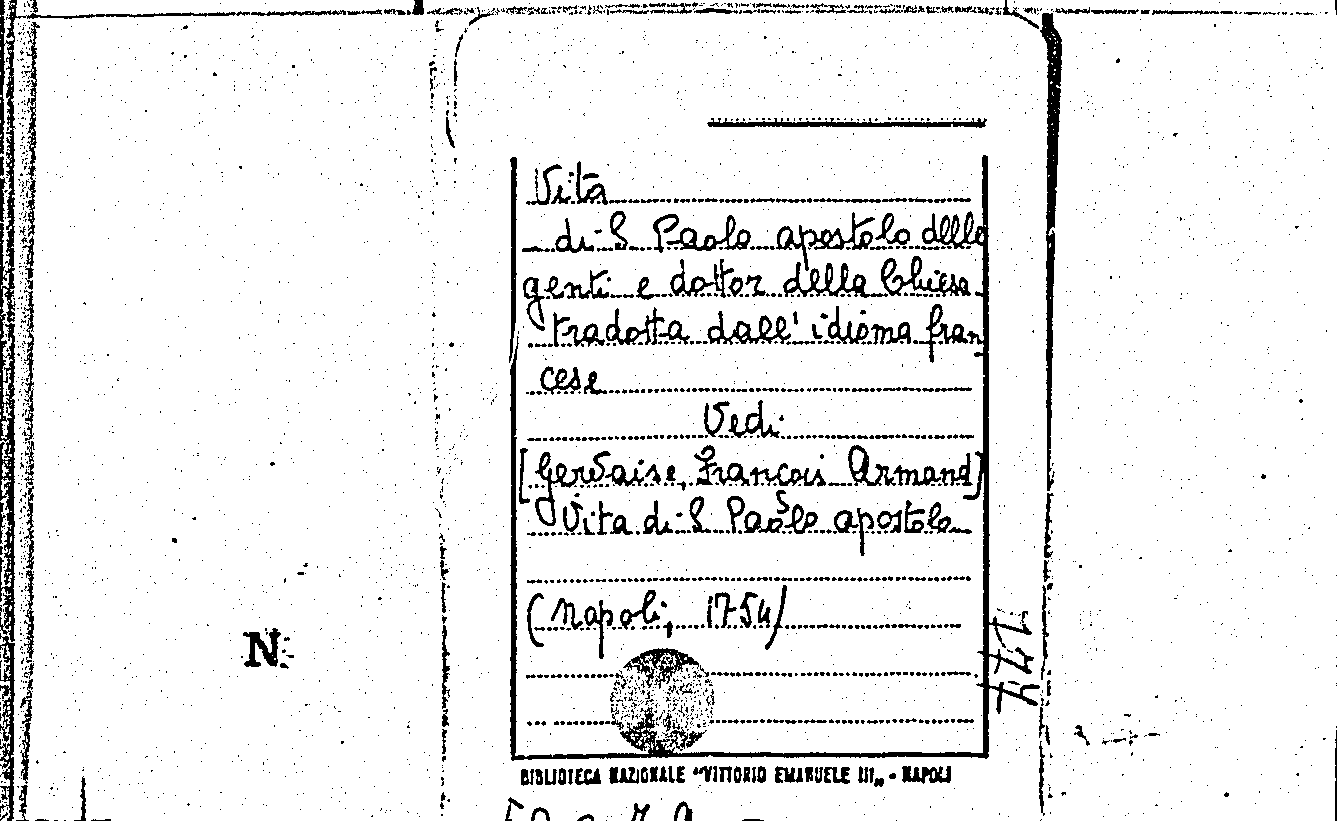 Vita
_ di S Paolo apostolo delle
genti e dottor della Chiesa
tradotta dall' idioma fran
cese
Vedi
[Gervaise, François Armand]
Vita di S Paolo apostolo
(Napoli, 1754)
N.
BIBLIOTECA NAZIONALE "VITTORIO EMANUELE III„ - NAPOLI